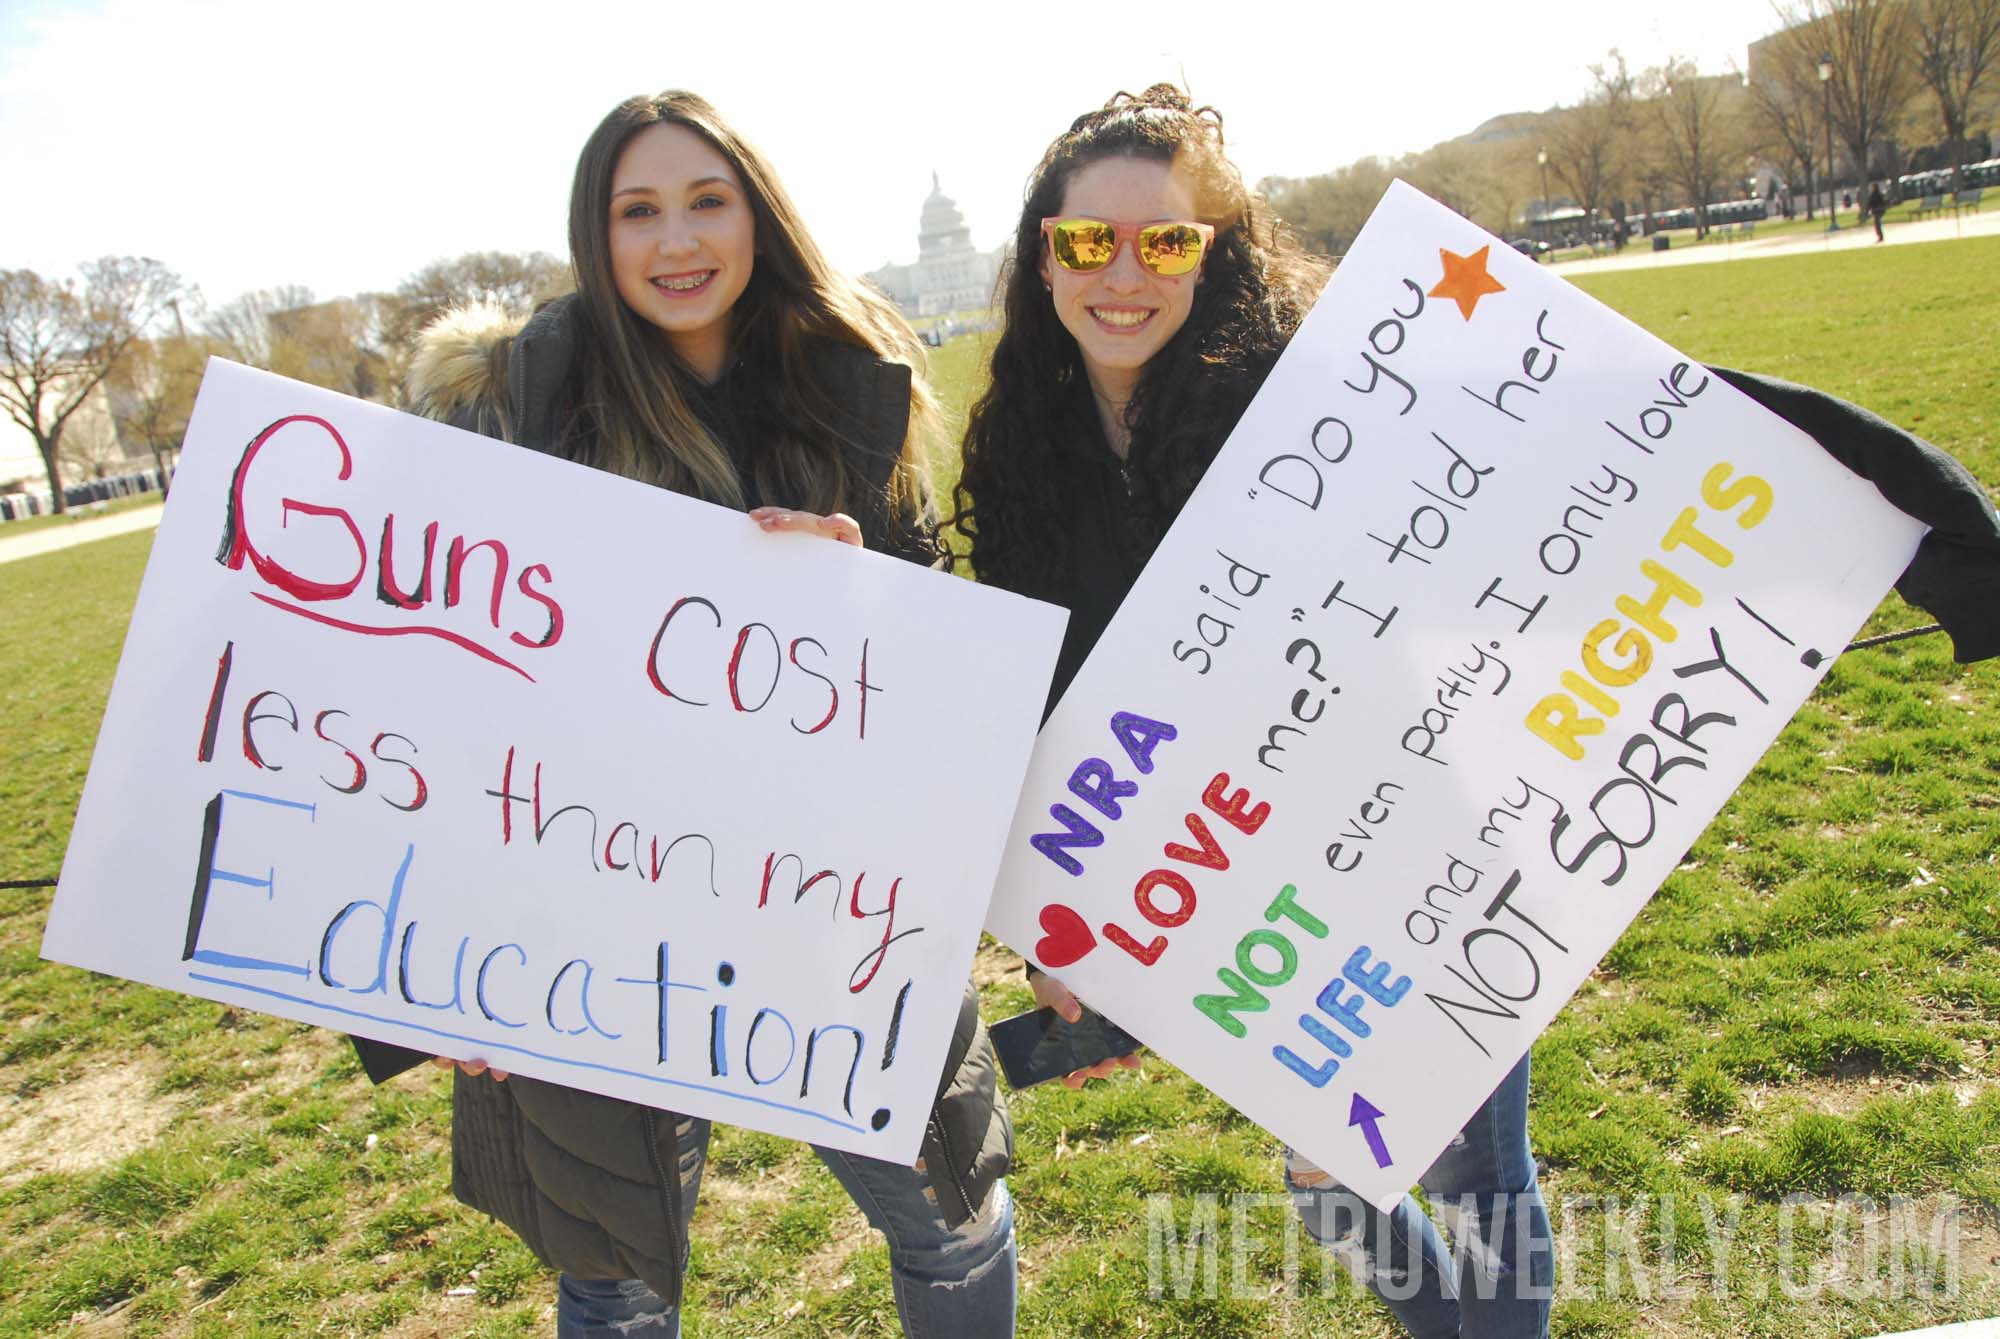 Guns cost
less than my
Education!
NRA said "Do you
LOVE me?" I told her
NOT even partly. I only love
LIFE and my RIGHTS
NOT SORRY!
METROWEEKLY.COM